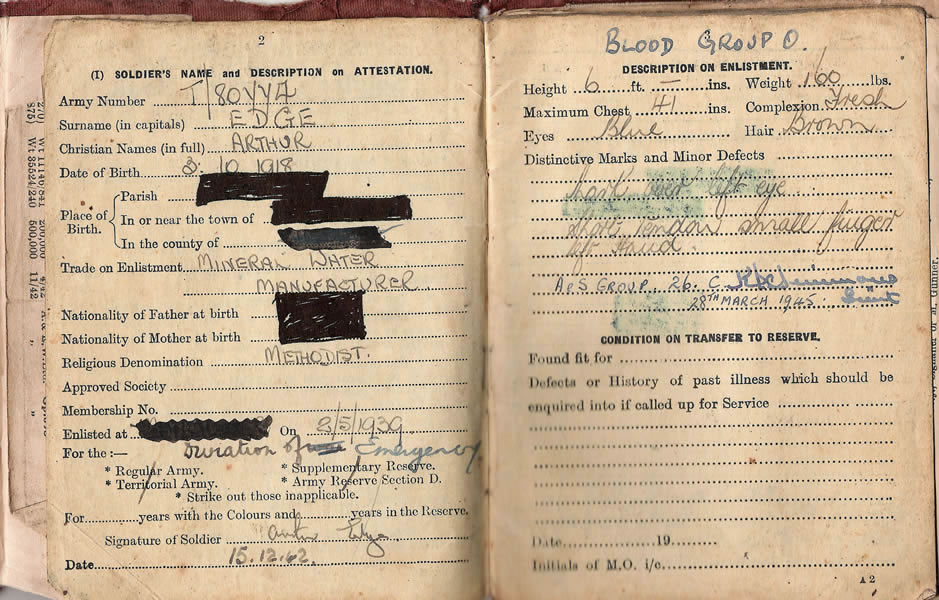 2
(I) SOLDIER'S NAME and DESCRIPTION on ATTESTATION.
Army Number T/80
Surname (in capitals) EDGE
Christian Names (in full) ARTHUR
Date of Birth 3. 10. 1918
Place of Birth.
Parish
In or near the town of
In the county of
Trade on Enlistment MINERAL WATER
MANUFACTURER
Nationality of Father at birth
Nationality of Mother at birth
Religious Denomination METHODIST.
Approved Society
Membership No.
Enlisted at On 3/5/1939
For the :— Duration of Emergency
* Regular Army. * Supplementary Reserve.
* Territorial Army. * Army Reserve Section D.
* Strike out those inapplicable.
For years with the Colours and years in the Reserve.
Signature of Soldier
Date 15.12.62.
BLOOD GROUP O.
DESCRIPTION ON ENLISTMENT.
Height 6 ft. — ins. Weight 160 lbs.
Maximum Chest 41 ins. Complexion Fresh
Eyes Blue Hair Brown
Distinctive Marks and Minor Defects
mark over left eye
small finger
A & S GROUP. 26. C.
28TH MARCH 1945.
CONDITION ON TRANSFER TO RESERVE.
Found fit for
Defects or History of past illness which should be
enquired into if called up for Service
Date 19
Initials of M.O. i/c
A 2